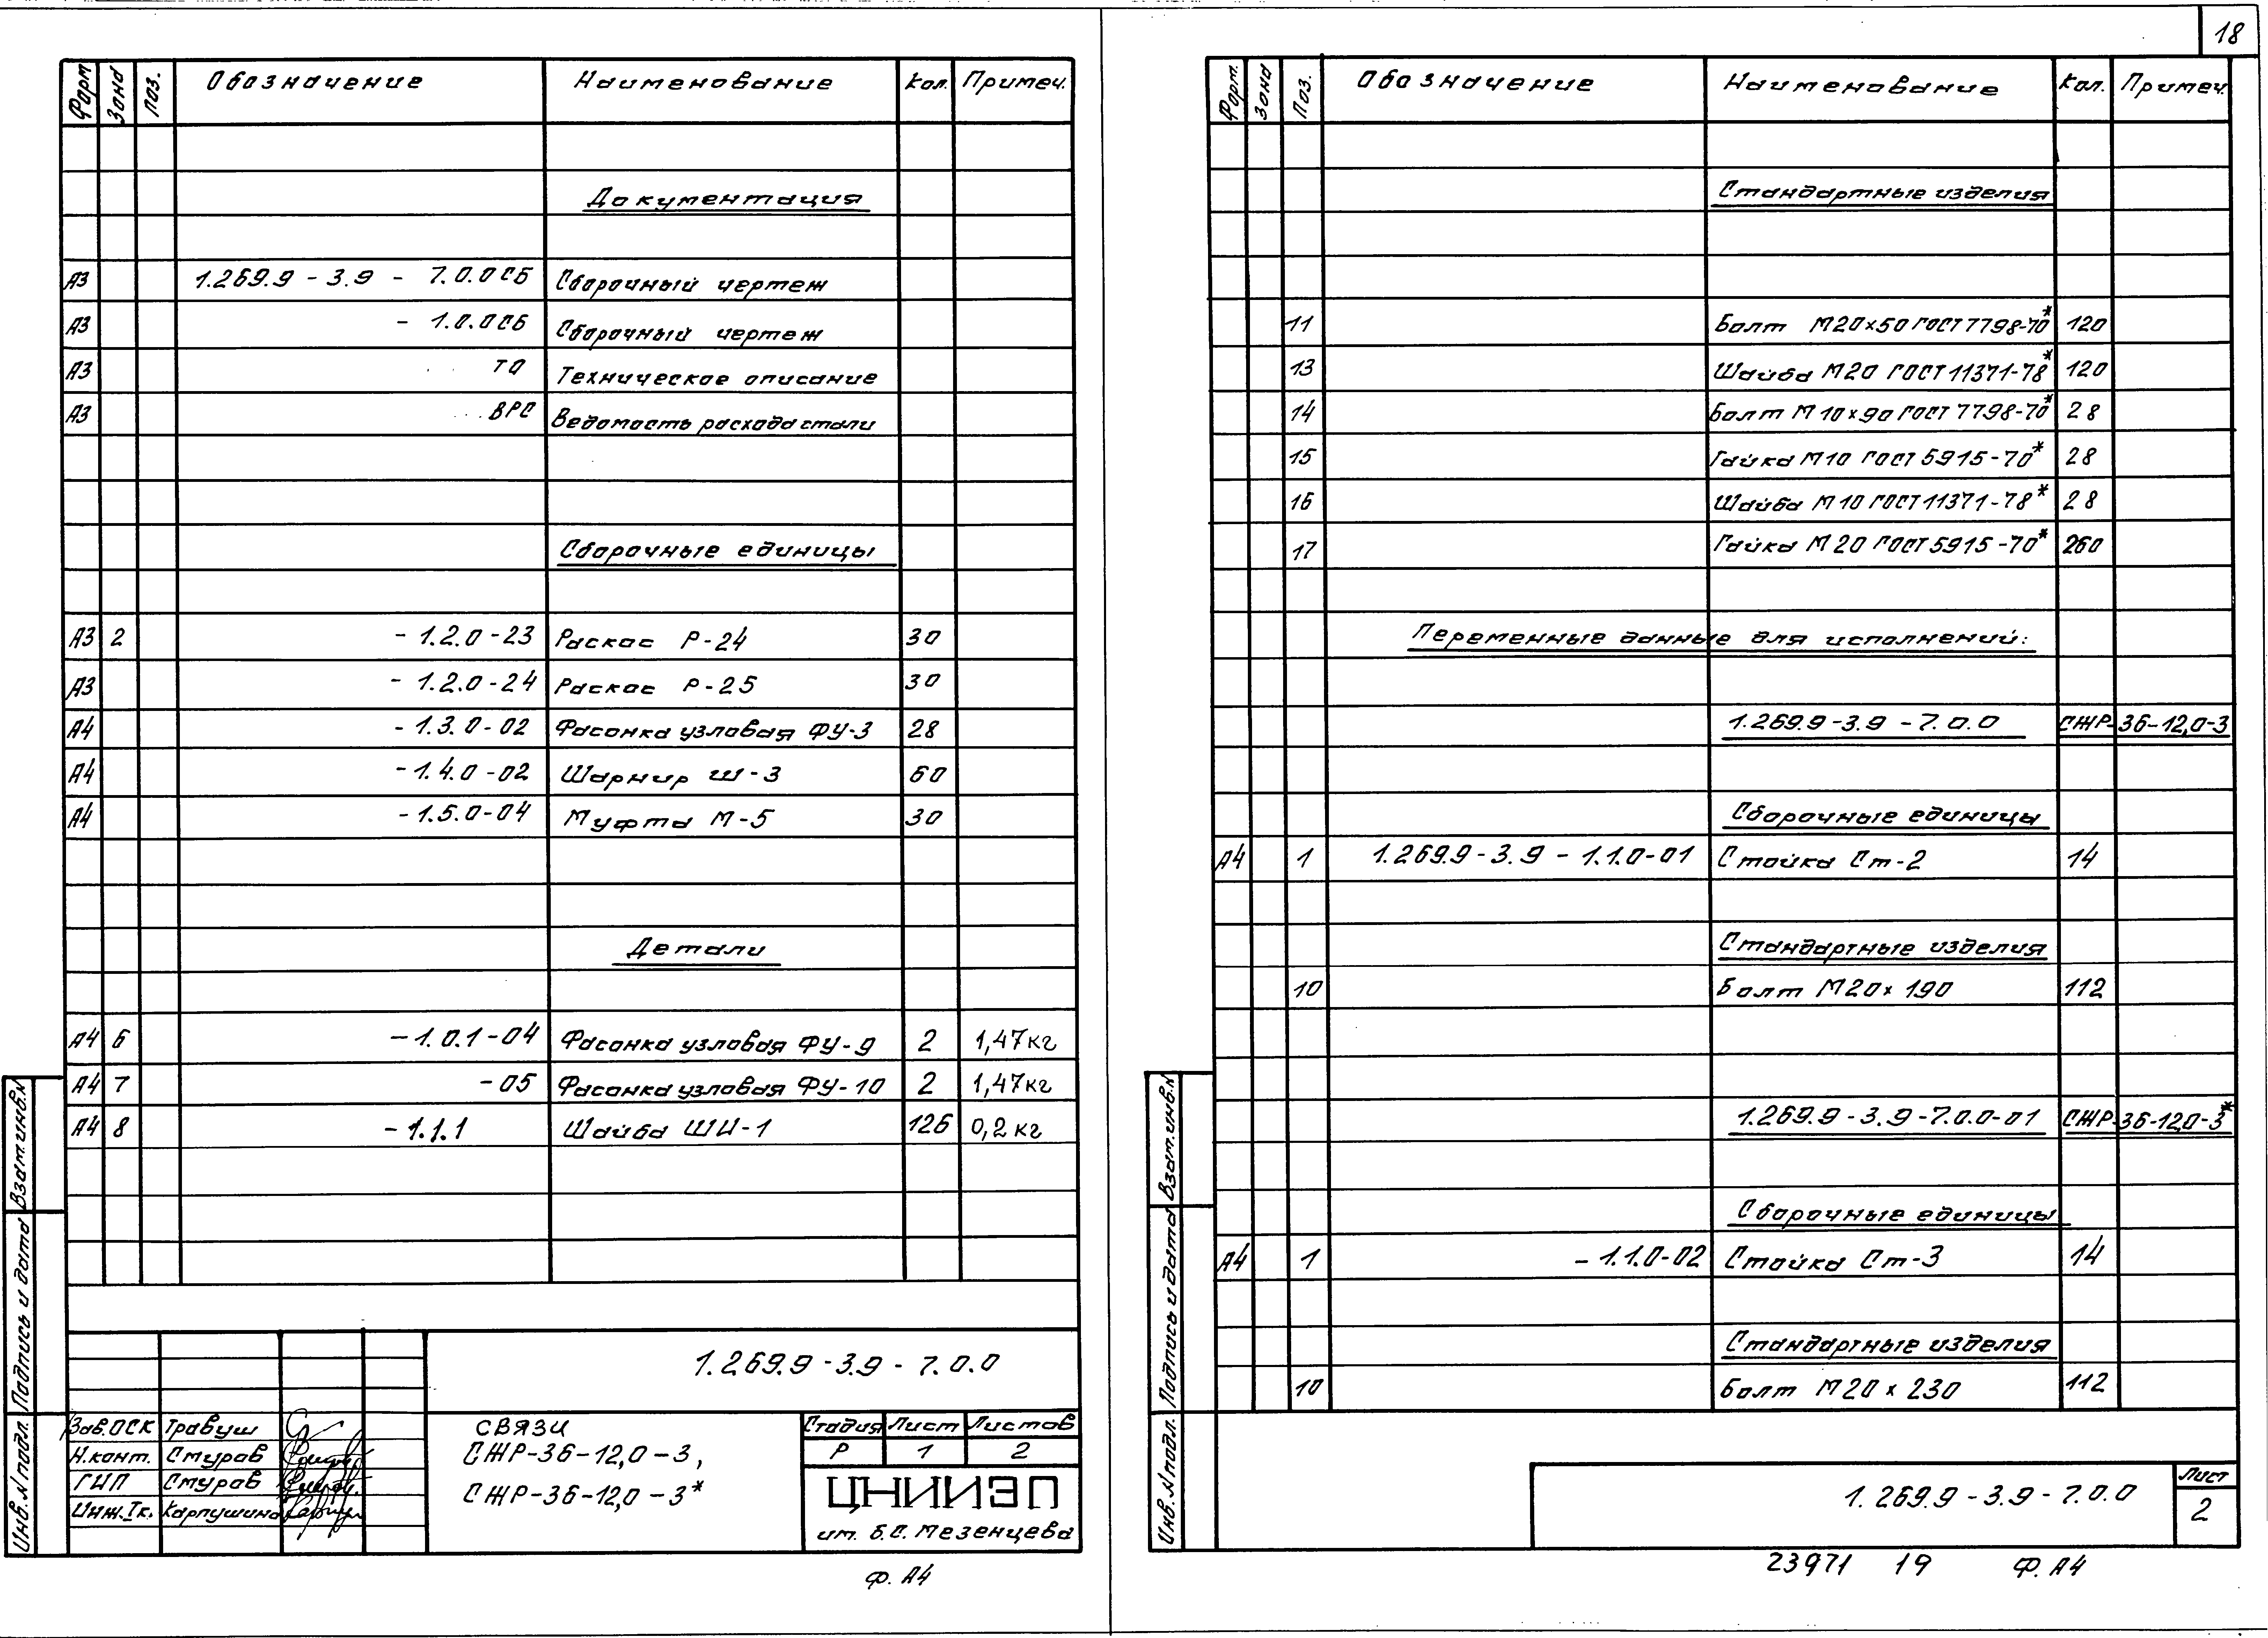 18
Форм Зона Поз. Обозначение Наименование Кол. Примеч.
Документация
А3 1.269.9-3.9 - 7.0.0СБ Сборочный чертеж
А3 - 1.0.0СБ Сборочный чертеж
А3 ТО Техническое описание
А3 ВРС Ведомость расхода стали
Сборочные единицы
А3 2 - 1.2.0-23 Раскос Р-24 30
А3 - 1.2.0-24 Раскос Р-25 30
А4 - 1.3.0-02 Фасонка узловая ФУ-3 28
А4 - 1.4.0-02 Шарнир Ш-3 60
А4 - 1.5.0-04 Муфта М-5 30
Детали
А4 6 - 1.0.1-04 Фасонка узловая ФУ-9 2 1,47кг
А4 7 - 05 Фасонка узловая ФУ-10 2 1,47кг
А4 8 - 1.1.1 Шайба ШИ-1 126 0,2кг
Взам.инв.N
Подпись и дата
Инв.N подл.
1.269.9-3.9-7.0.0
Зав.ОСК Травуш
Н.конт. Смуров
ГИП Смуров
Инж.Iк. Карпушина
СВЯЗИ
СЖР-36-12,0-3,
СЖР-36-12,0-3*
Стадия Лист Листов
Р 1 2
ЦНИИЭП
им. Б.С. Мезенцева
Ф. А4
Форм. Зона Поз. Обозначение Наименование Кол. Примеч.
Стандартные изделия
11 Болт М20×50 ГОСТ 7798-70* 120
13 Шайба М20 ГОСТ 11371-78* 120
14 Болт М10×90 ГОСТ 7798-70* 28
15 Гайка М10 ГОСТ 5915-70* 28
16 Шайба М10 ГОСТ 11371-78* 28
17 Гайка М20 ГОСТ 5915-70* 260
Переменные данные для исполнений:
1.269.9-3.9-7.0.0 СЖР-36-12,0-3
Сборочные единицы
А4 1 1.269.9-3.9-1.1.0-01 Стойка Ст-2 14
Стандартные изделия
10 Болт М20×190 112
1.269.9-3.9-7.0.0-01 СЖР-36-12,0-3*
Сборочные единицы
А4 1 - 1.1.0-02 Стойка Ст-3 14
Стандартные изделия
10 Болт М20×230 112
Взам.инв.N
Подпись и дата
Инв.N подл.
1.269.9-3.9-7.0.0
Лист
2
23971 19 Ф. А4